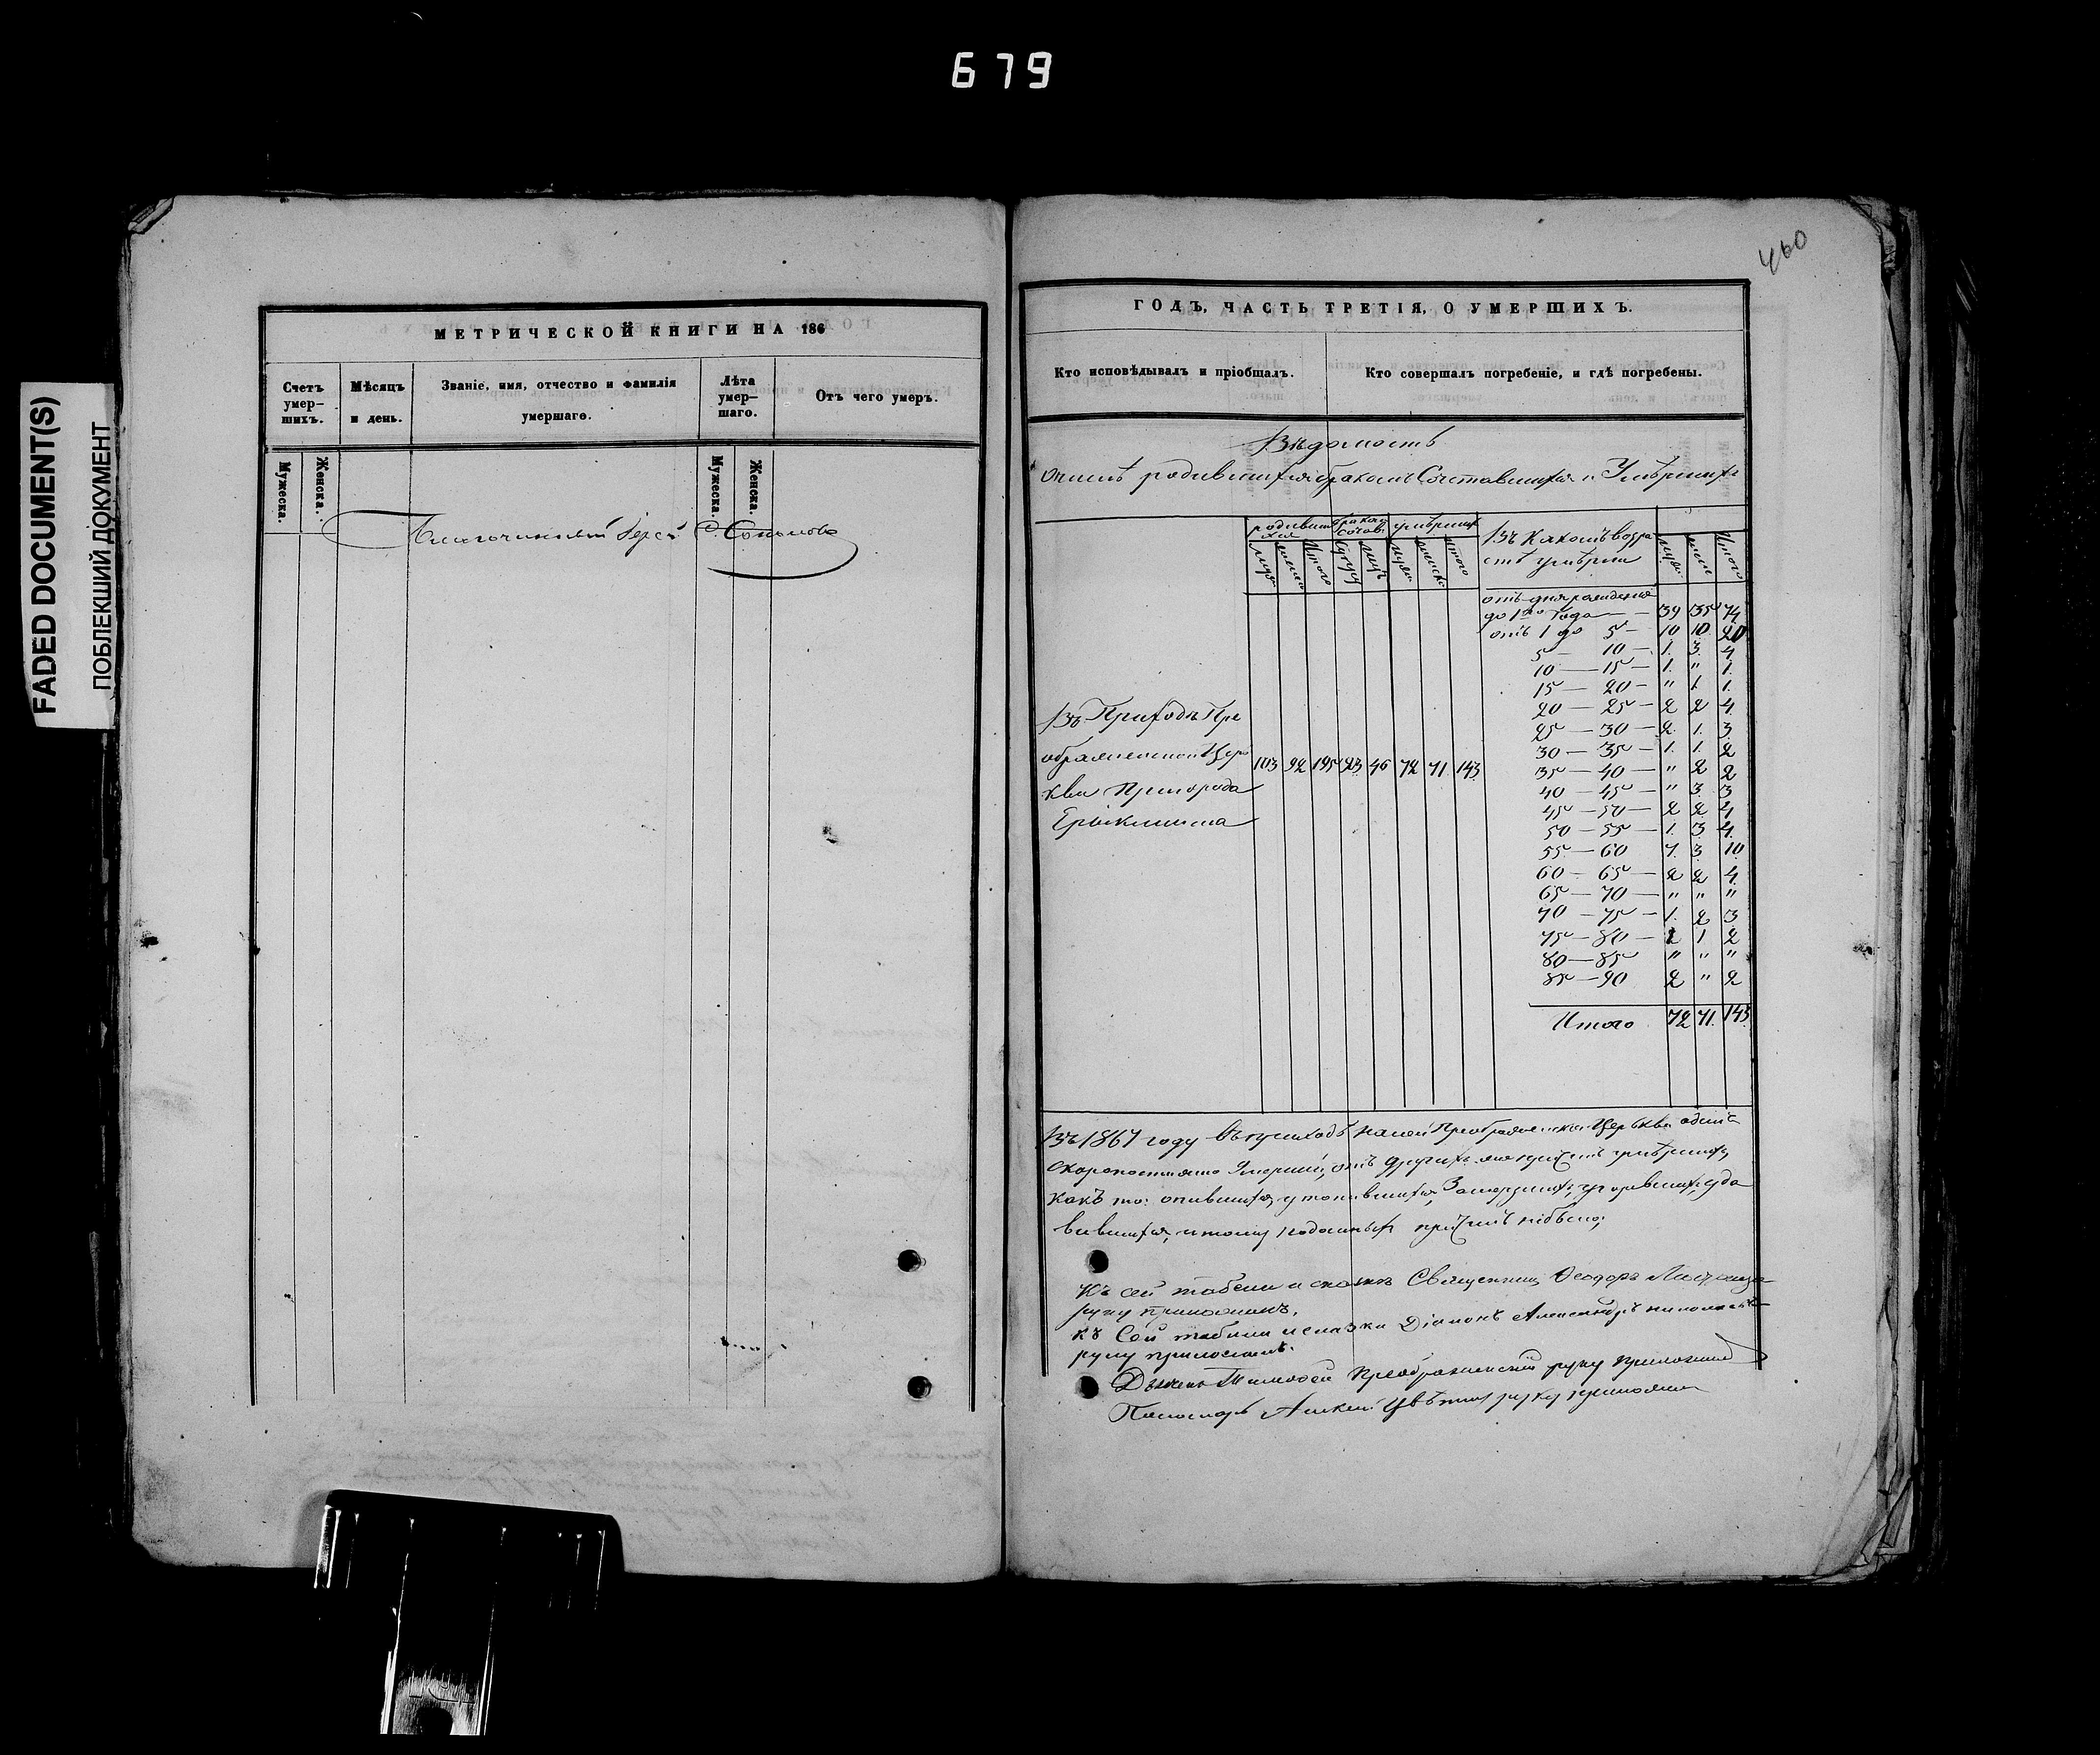 679
FADED DOCUMENT(S)
ПОБЛЕКШИЙ ДОКУМЕНТ
МЕТРИЧЕСКОЙ КНИГИ НА 186
Счетъ умер-шихъ.
Мѣсяцъ и день.
Званіе, имя, отчество и фамилія умершаго.
Лѣта умер-шаго.
Отъ чего умеръ.
Мужеска. Женска. Мужеска. Женска.
Благочинный Іерей С. Соколовъ
460
ГОДЪ, ЧАСТЬ ТРЕТІЯ, О УМЕРШИХЪ.
Кто исповѣдывалъ и пріобщалъ.
Кто совершалъ погребеніе, и гдѣ погребены.
Вѣдомость
о числѣ родившихся бракомъ Сочетавшихся и Умершихъ
родившихся бракомъ сочет. умершихъ
Въ какомъ возра
стѣ умерли
муж. женск. Итого супруж. лицъ муж. женск. итого муж. женс. Итого
отъ дня рожденія
до 1го года — 39 35 74
отъ 1 до 5 — 10 10 20
5 — 10 — 1. 3. 4
10 — 15 — 1. " 1.
15 — 20 — " 1 1.
20 — 25 — 2 2 4
25 — 30 — 2. 1. 3.
30 — 35 — 1. 1. 2
35 — 40 — " 2 2
40 — 45 — " 3. 3
45 — 50 — 2 2 4
50 — 55 — 1. 3 4.
55 — 60 7. 3 10
60 — 65 — 2 2 4
65 — 70 — " " "
70 — 75 — 1. 2 3
75 — 80 — 1 1 2
80 — 85 " " "
85 — 90 2 " 2
Итого 72 71. 143
Въ Приходѣ Пре
ображенской Цер
кви Пригорода
Ерыклинска
103 92 195 23 46 72 71. 143
Въ 1867 году въ приходѣ нашей Преображенской Церкви одинъ
скоропостижно Умершій, отъ другихъ же причинъ умершихъ,
какъ то: опившихся, утопившихся, Замерзшихъ, угорѣвшихъ, уда
вившихся, и тому подобныхъ причинъ небыло;
Къ сей табели и сказкѣ Священникъ Ѳеодоръ
руку приложилъ.
Къ Сей табели и сказки Діаконъ Александръ
руку приложилъ.
Дьячекъ Тимофей Преображенскій руку приложилъ
Пономарь Алексѣй Цвѣтковъ руку приложилъ